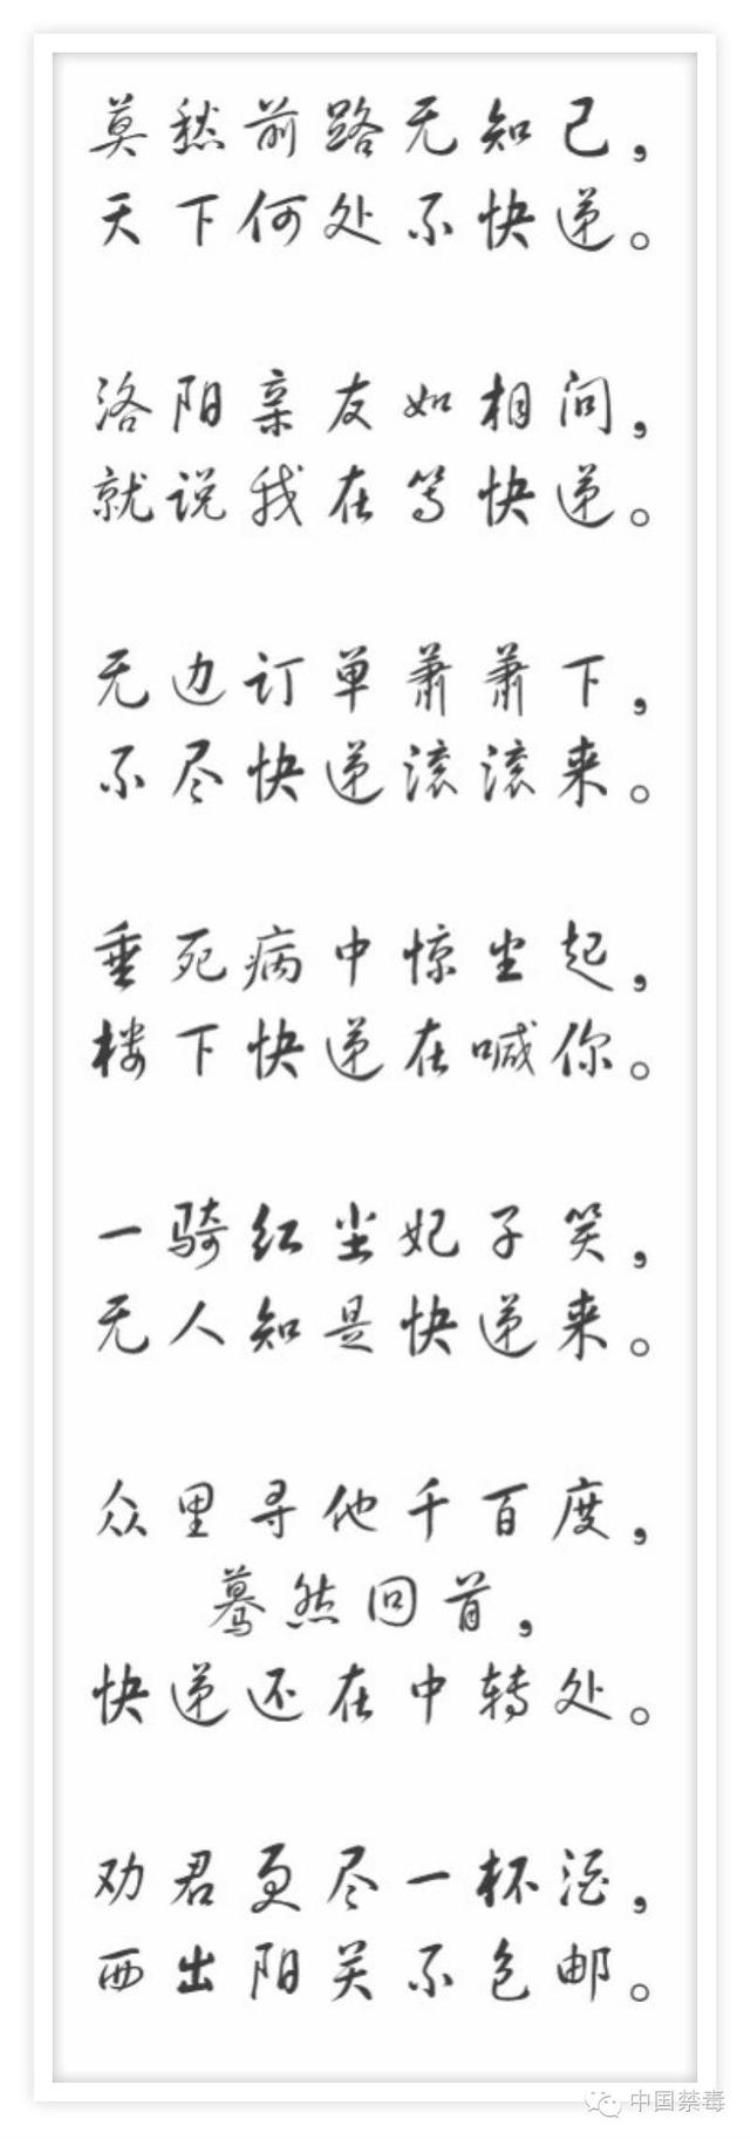 莫愁前路无知己，
天下何处不快递。
洛阳亲友如相问，
就说我在等快递。
无边订单萧萧下，
不尽快递滚滚来。
垂死病中惊坐起，
楼下快递在喊你。
一骑红尘妃子笑，
无人知是快递来。
众里寻他千百度，
蓦然回首，
快递还在中转处。
劝君更尽一杯酒，
西出阳关不包邮。
中国禁毒